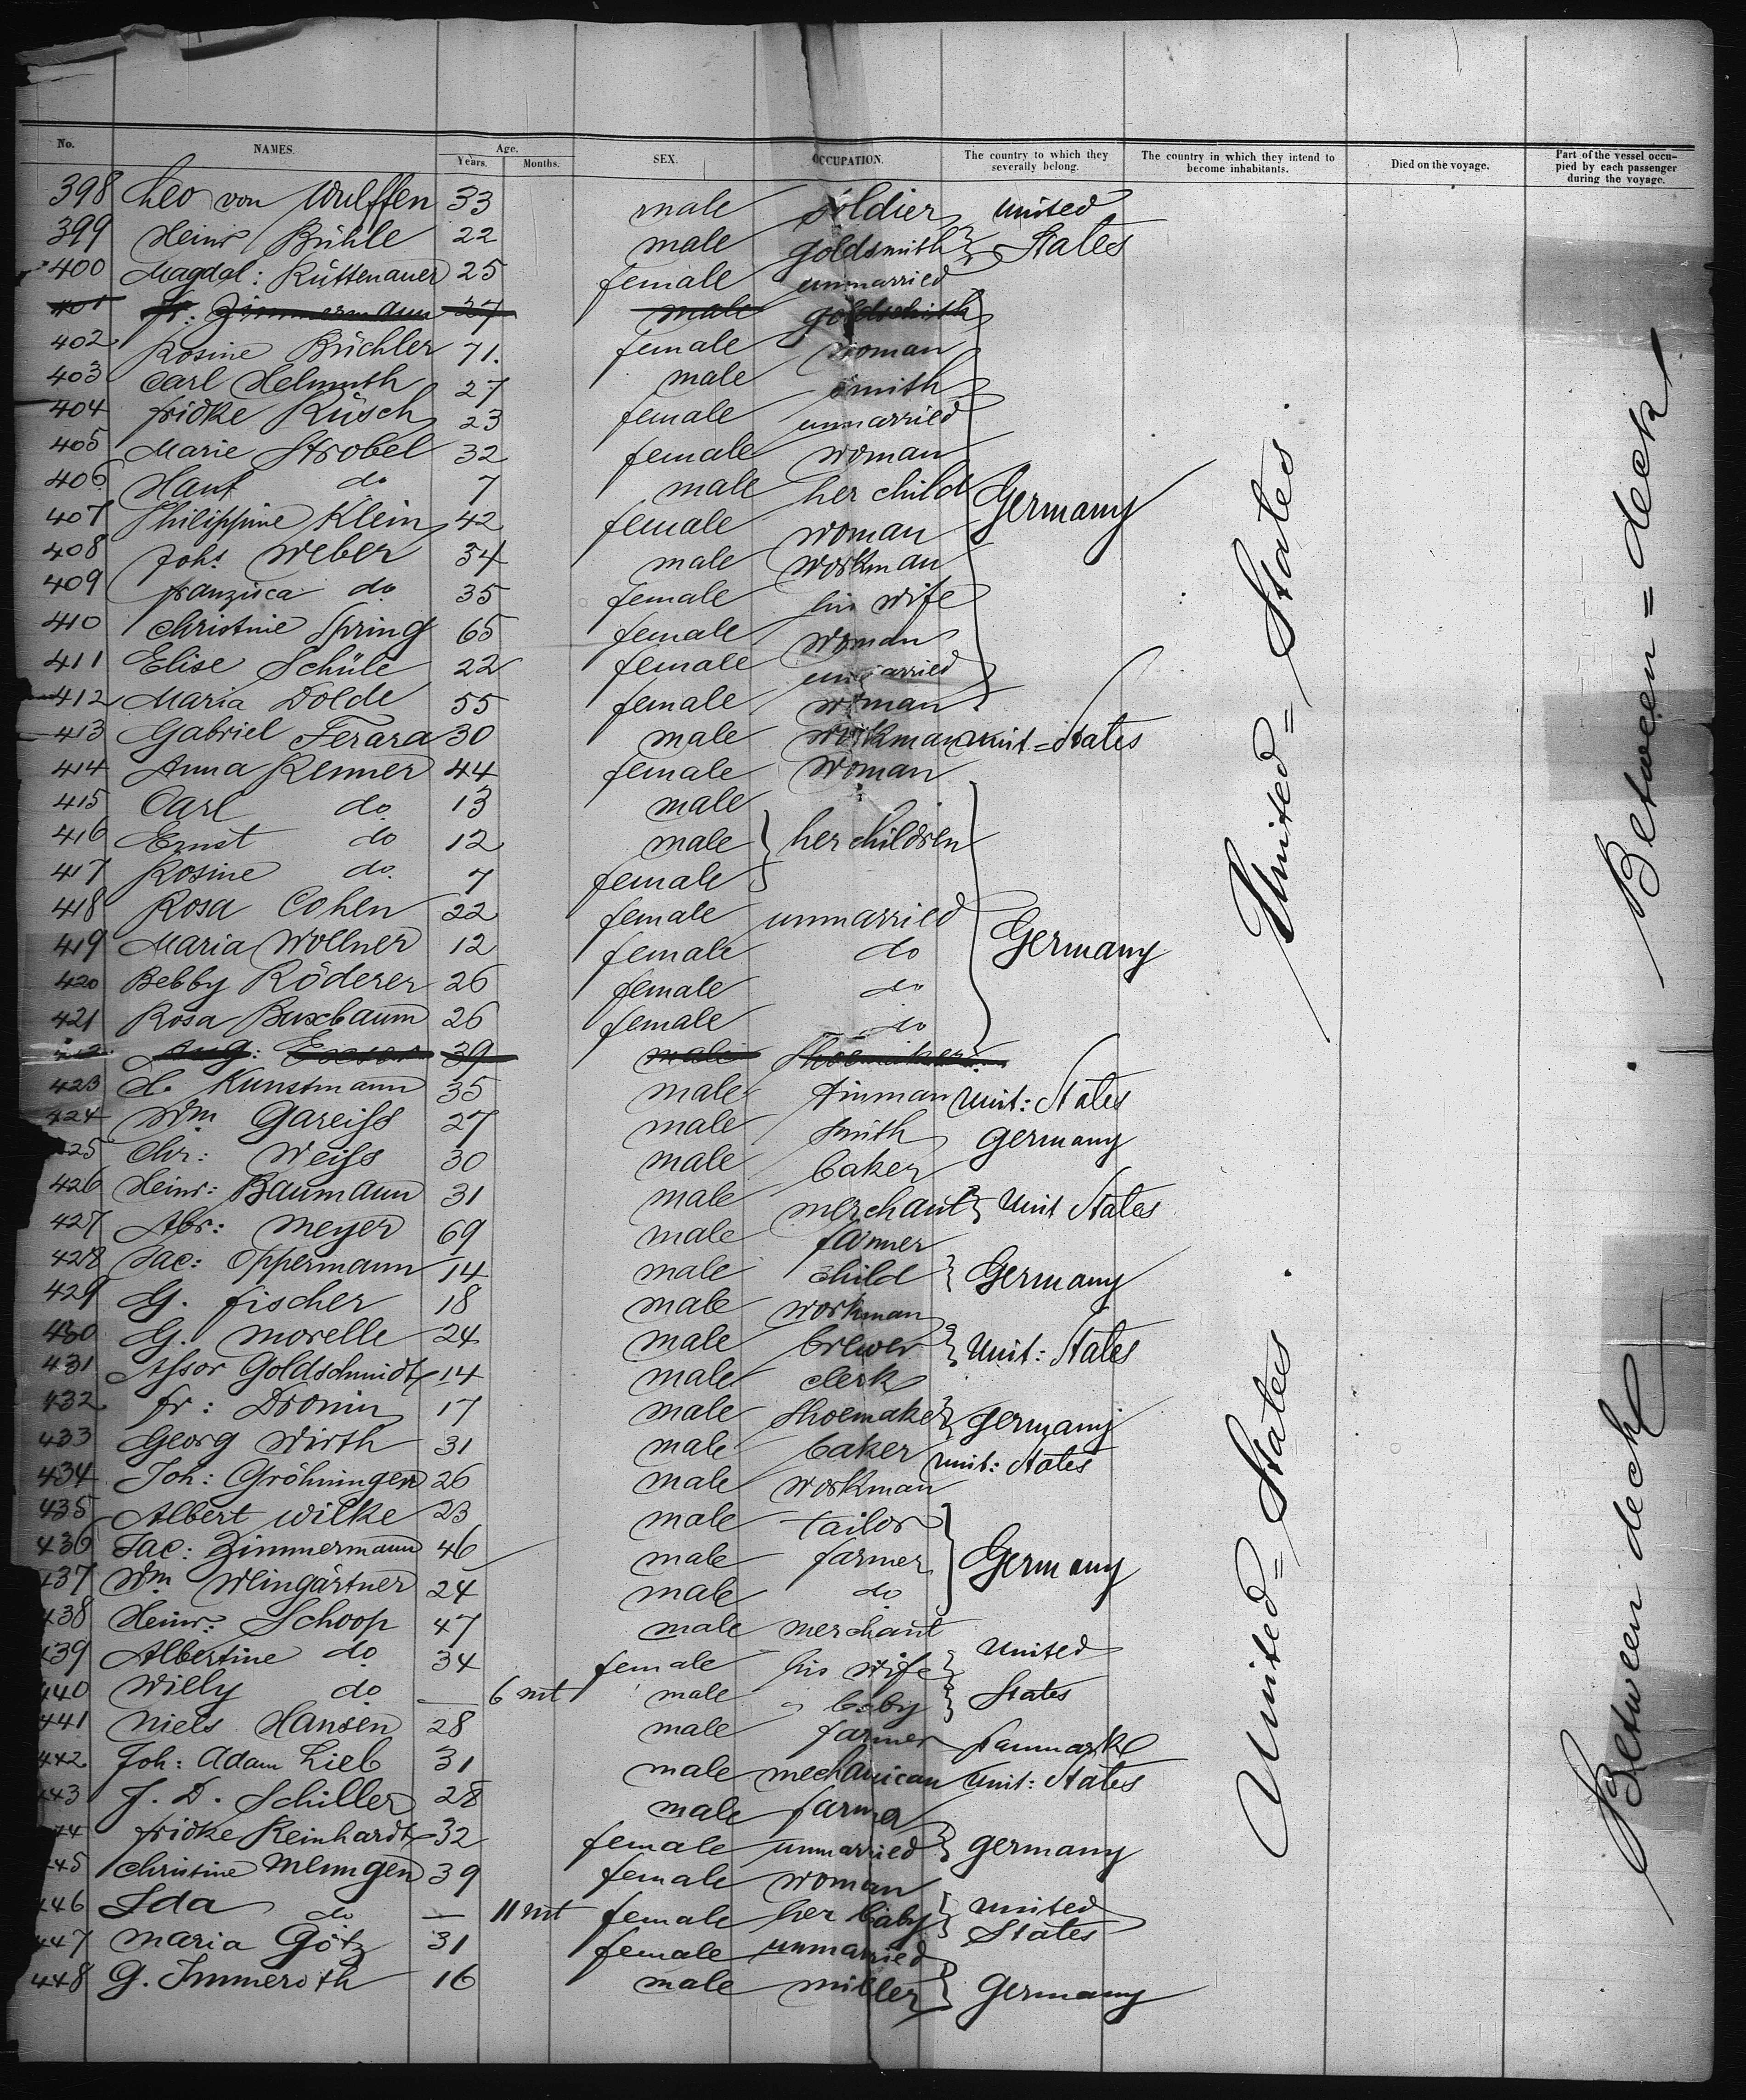 No. NAMES. Age. Years. Months. SEX. OCCUPATION. The country to which they severally belong. The country in which they intend to become inhabitants. Died on the voyage. Part of the vessel occupied by each passenger during the voyage.
398 Leo von Wulffen 33 male soldier United
399 Heinr Bühle 22 male goldsmith } States
400 Magdal: Rüttenauer 25 female unmarried
401 Fr: Zimmermann 27 male goldschith
402 Rosine Büchler 71. female woman
403 Carl Helmuth 27 male smith
404 fridke Rüsch 23 female unmarried
405 Marie Strobel 32 female woman
406 do 7 male her child Germany
407 Philippine Klein 42 female woman
408 Johs Weber 34 male workman
409 franzisca do 35 female his wife
410 Christine Spring 65 female woman
411 Elise Schüle 22 female unmarried
412 Maria Dolde 55 female woman
413 Gabriel Ferara 30 male workman unit=States
414 Anna Renner 44 female woman
415 Carl do 13 male
416 Ernst do 12 male } her children
417 Rosine do. 7 female
418 Rosa Cohen 22 female unmarried
419 Maria Wollner 12 female do Germany
420 Bebby Röderer 26 female do
421 Rosa Buxbaum 26 female do
Aug: 39 male Shoemaker
423 H. Kunstmann 35 male tinman Unit: States
424 Wm Gareiss 27 male smith Germany
425 Chr: Weiss 30 male baker
426 Heinr: Baumann 31 male merchant } Unit States
427 Abr: Meyer 69 male farmer
428 Jac: Oppermann 14 male child } Germany
429 G. fischer 18 male workman
430 G. Morelle 24 male brewer } Unit: States
431 Assor Goldschmidt 14 male clerk
432 fr: Dronin 17 male Shoemaker } Germany
433 Georg Wirth 31 male baker unit: States
434 Joh: Gröhningen 26 male workman
435 Albert Wilke 23 male tailor
436 Jac: Zimmermann 46 male farmer Germany
437 Wm Weingärtner 24 male do
438 Heinr: Schoop 47 male merchant
439 Albertine do 34 female his wife } United
440 Willy do — 6 mt male baby } States
441 Niels Hansen 28 male farmer Danmark
442 Joh: Adam Lieb 31 male mechanican Unit: States
443 J. D. Schiller 28 male farmer
444 fridke Reinhardt 32 female unmarried } Germany
445 Christine 39 female woman
446 Ida do — 11 mt female her baby } United States
447 Maria Götz 31 female unmarried
448 G. Immeroth 16 male miller } Germany
United=States
United=States
Between=deck
Between deck